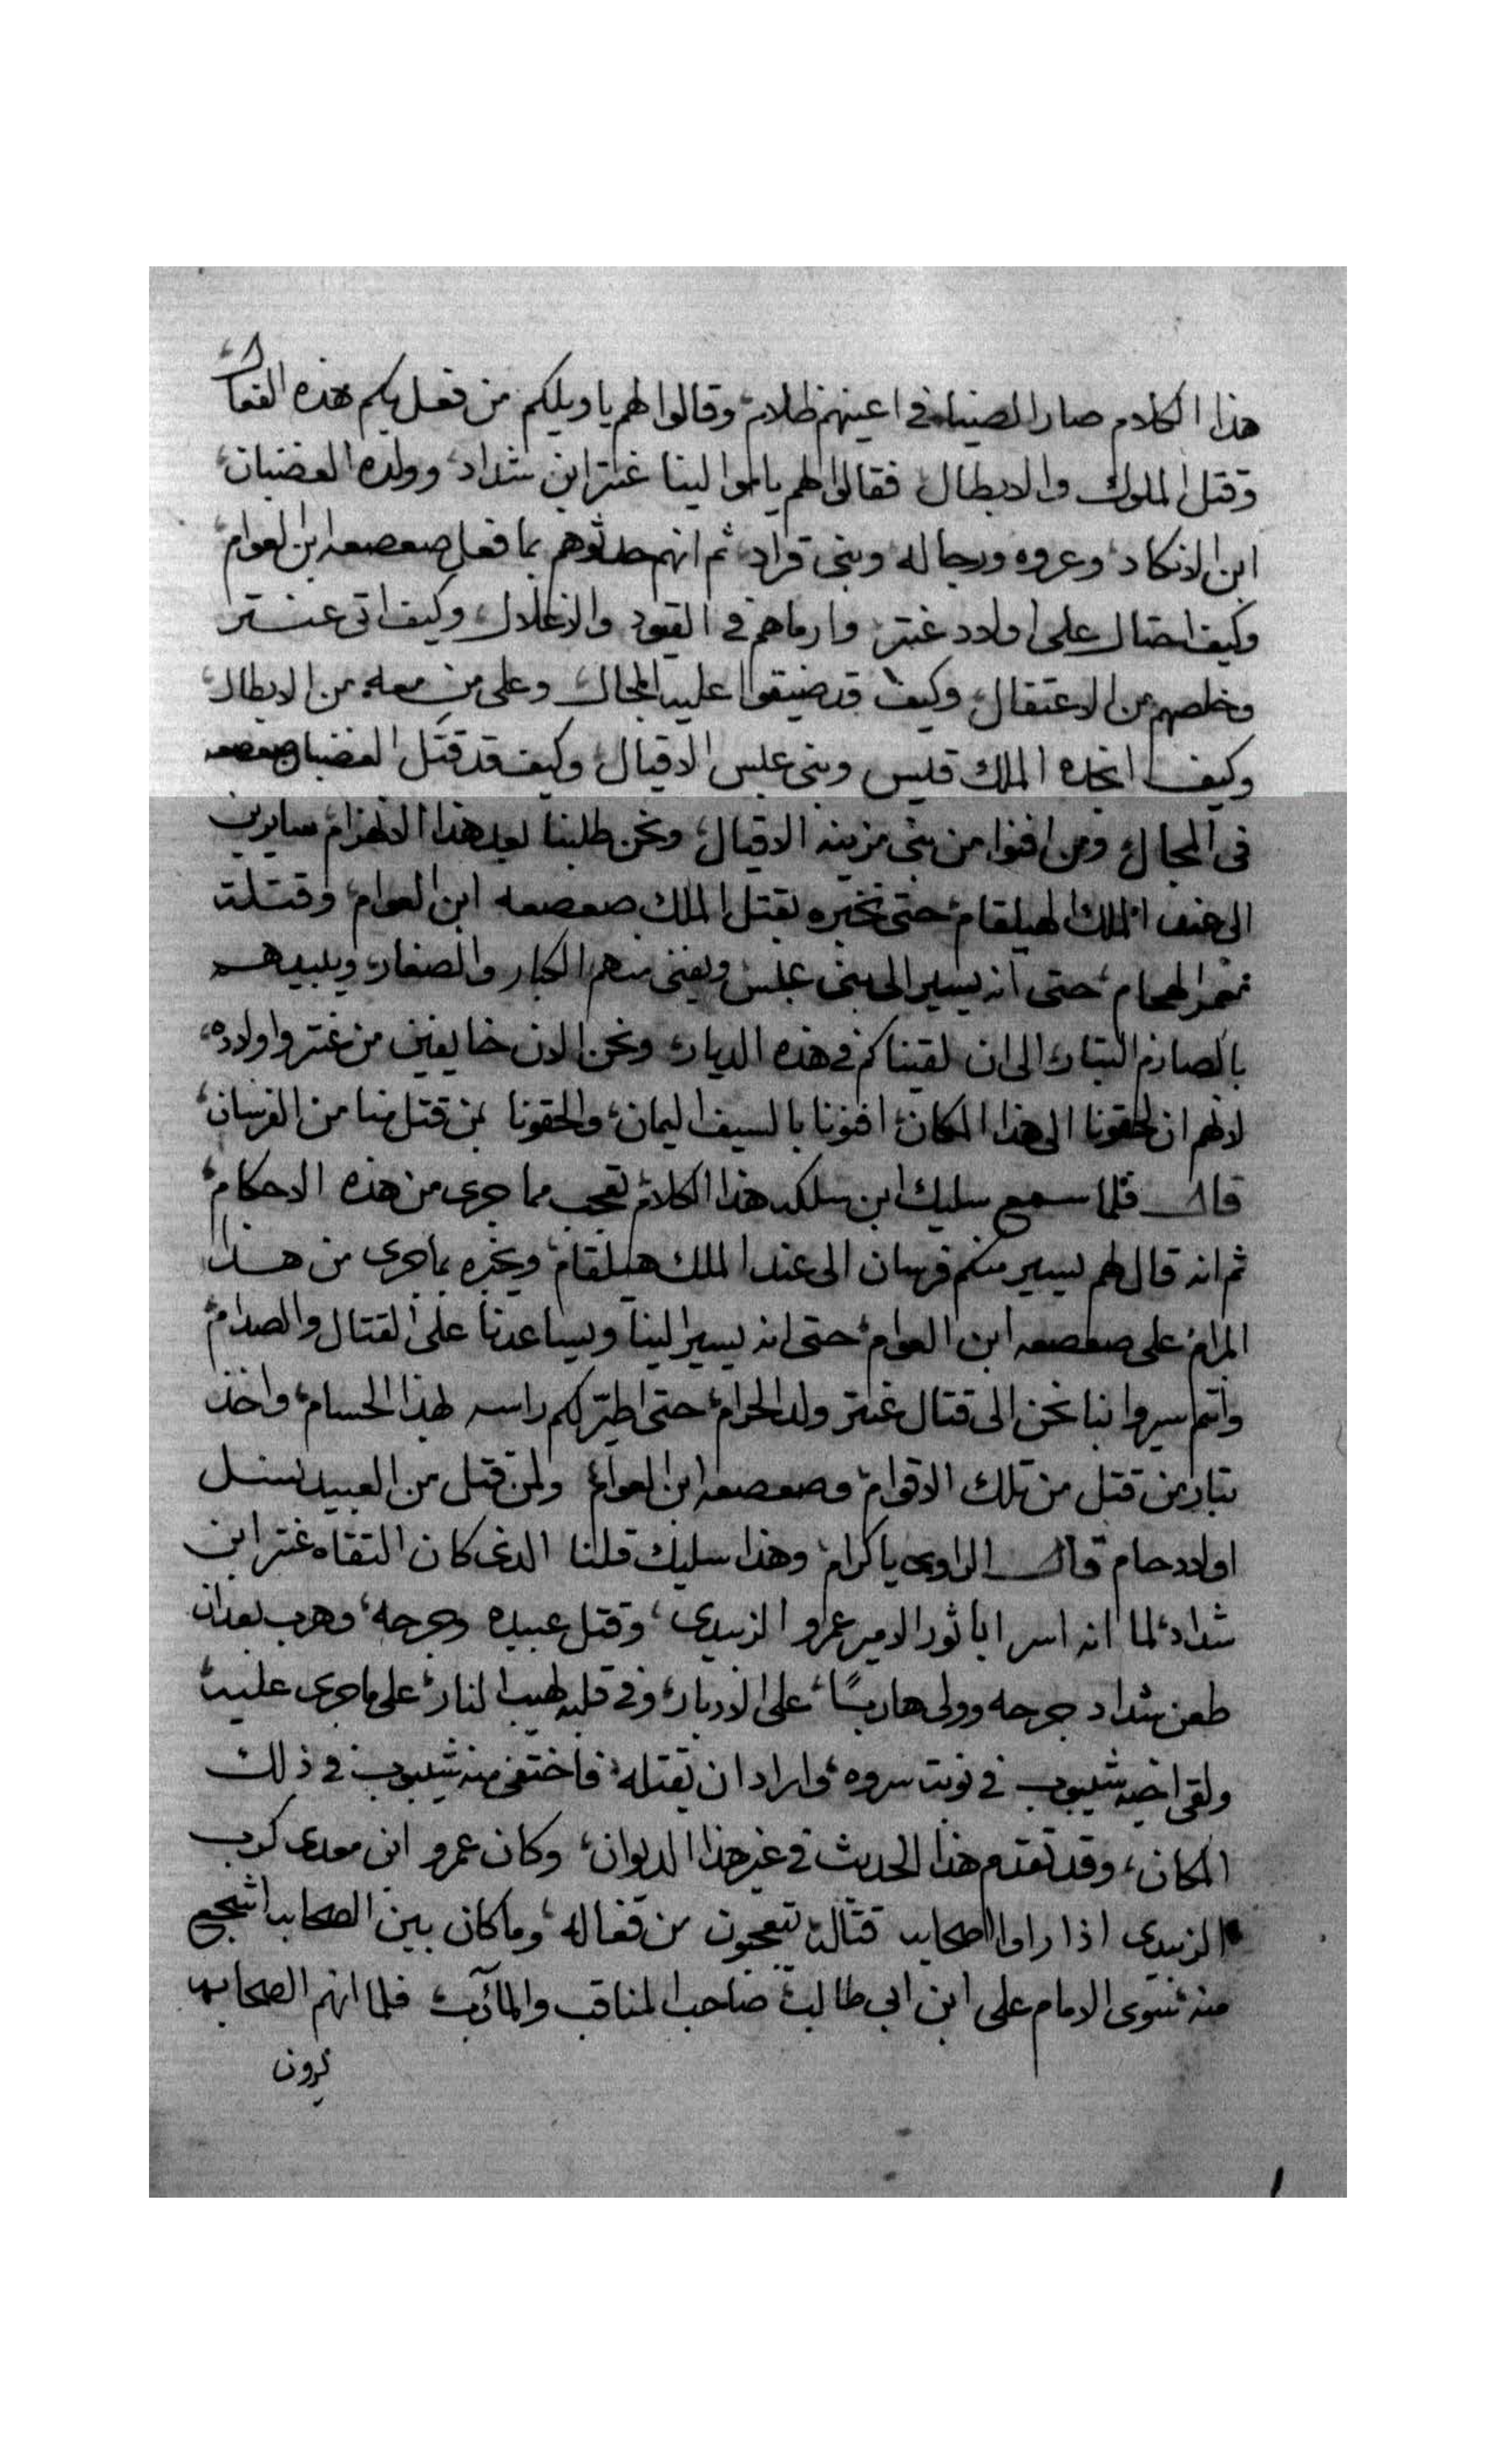 هذا الكلام صار الضياء في اعينهم ظلام، وقالوا لهم يا ويلكم من فعل بكم هذه الفعال
وقتل الملوك والابطال، فقالوا لهم يا موالينا عنتر ابن شداد، وولده الغضبان،
ابن الانكاد، وعروه ورجاله وبني قراد، ثم انهم حدثوهم بما فعل صعصعه ابن العوام،
وكيف احتال على اولاد عنتر، وارماهم في القيود والاغلال، وكيف اتى عنتر
وخلصهم من الاعتقال، وكيف قد ضيقوا عليه المجال، وعلى من معه من الابطال،
وكيف انجده الملك قيس وبني عبس الاقيال، وكيف قد قتل الغضبان صعصعه
في المجال، ومن افنوا من بني مزينه الاقيال، ونحن طلبنا بعد هذا الانهزام، سايرين
الى عند الملك لهيلقام، حتى نخبره بقتل الملك صعصعه ابن العوام، وقتلة
الهجام، حتى انه يسير الى بني عبس ويفني منهم الكبار والصغار، ويبيدهم
بالصارم البتار، الى ان لقيناكم في هذه الديار، ونحن الان خايفين من عنتر واولاده،
لانهم ان لحقونا الى هذا المكان، افنونا بالسيف اليمان، والحقونا بمن قتل منا من الفرسان،
قال فلما سمع سليك ابن سلكه هذا الكلام، تعجب مما جرى من هذه الاحكام،
ثم انه قال لهم يسير منكم فرسان الى عند الملك هيلقام، ويخبره بما جرى من هذا
المرام، على صعصعه ابن العوام، حتى انه يسير الينا ويساعدنا على القتال والصدام،
وانتم سيروا بنا نحن الى قتال عنتر ولد الحرام، حتى اطير لكم راسه بهذا الحسام، واخذ
بتار من قتل من تلك الاقوام، وصعصعه ابن العوام، ولمن قتل من العبيد نسل
اولاد حام، قال الراوى يا كرام، وهذا سليك قلنا الذى كان التقاه عنتر ابن
شداد، لما انه اسر ابا ثور الامير عمرو الزبيدى، وقتل عبيده وجرحه، وهرب بعد ان
طعن شداد جرحه وولى هاربًا، على الادبار، وفي قلبه لهيب النار، على ما جرى عليه،
ولقى اخيه شيبوب في نوبت سروه، واراد ان يقتله، فاختفى منه شيبوب في ذلك
المكان، وقد تقدم هذا الحديث في غير هذا الديوان، وكان عمرو ابن معدى كرب
الزبيدى اذا راوا الصحابه قتاله يتعجبون من فعاله، وما كان بين الصحابه اشجع
منه، سوى الامام على ابن ابي طالب، صاحب المناقب والمآرب، فلما انهم الصحابه
يرون